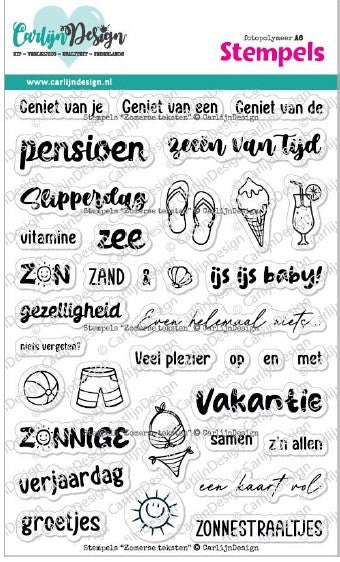 CarlijnDesign
HIP - VROLIJK - KWALITEIT - NEDERLANDS
fotopolymeer A6
Stempels
www.carlijndesign.nl
Geniet van je Geniet van een Geniet van de
Stempels "Zomerse teksten" © CarlijnDesign
pensioen zeeën van tijd
Slipperdag
vitamine zee
ZON ZAND & ijs ijs baby!
gezelligheid Even helemaal niets...
Stempels "Zomerse teksten" © CarlijnDesign
niets vergeten? Veel plezier op en met
vakantie
ZONNIGE samen z'n allen
Stempels "Zomerse teksten" © CarlijnDesign
verjaardag een kaart vol
groetjes ZONNESTRAALTJES
Stempels "Zomerse teksten" © CarlijnDesign